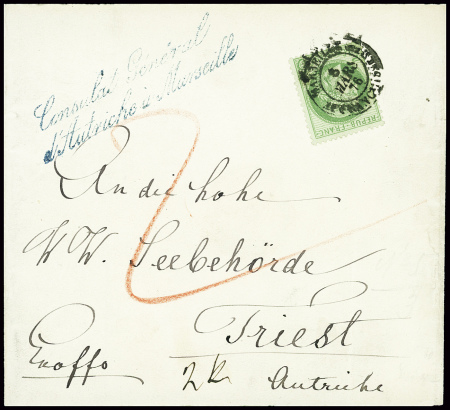 Consulat Général
d'Autriche à Marseille
MARSEILLE
6
MARS
76
REPUB·FRANC·
An die hohe
K K. Seebehörde
Triest
Exoffo
Autriche